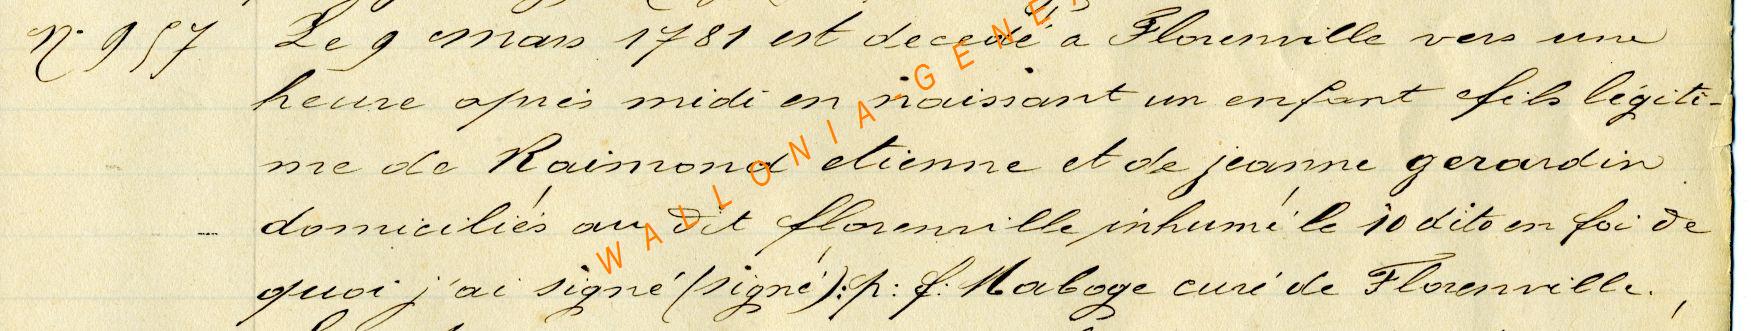 N° 957 Le 9 mars 1781 est decedé a Florenville vers une
heure apriés midi en naissant un enfant fils légiti-
me de Raimond etienne et de jeanne gerardin
domiciliés au dit florenville inhumé le 10 dito en foi de
quoi j'ai signé (signé): p: f: Maboge curé de Florenville.
WALLONIA-GENE